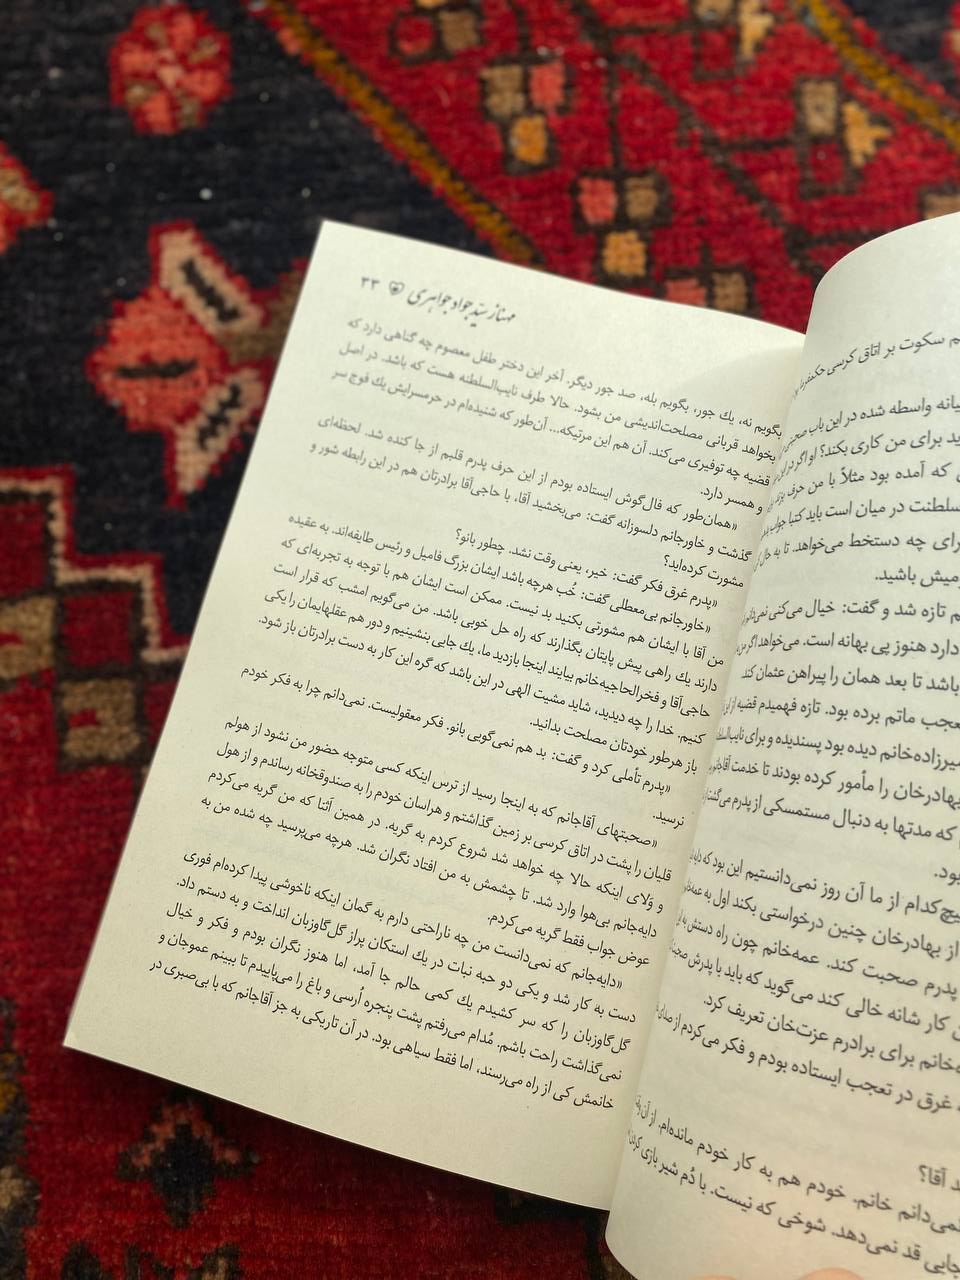 م سکوت بر اتاق کرسی حکمفرما
یانه واسطه شده در این باب صحبتی
ید برای من کاری بکند؟ او اگر در این
ی که آمده بود مثلاً با من حرف بزند
سلطنت در میان است باید کتباً جواب
رای چه دستخط می‌خواهد. تا به حال
ومیش باشید.
م تازه شد و گفت: خیال می‌کنی نمی‌دانم
دارد هنوز پی بهانه است. می‌خواهد اگر من
باشد تا بعد همان را پیراهن عثمان کند.
عجب ماتم برده بود. تازه فهمیدم قضیه از این
میرزاده‌خانم دیده بود پسندیده و برای نایب‌السلطنه
بهادرخان را مأمور کرده بودند تا خدمت آقاجانم
که مدتها به دنبال مستمسکی از پدرم می‌گشتند
بود.
یچ‌کدام از ما آن روز نمی‌دانستیم این بود که
از بهادرخان چنین درخواستی بکند اول به عمه
پدرم صحبت کند. عمه‌خانم چون راه دستش
ن کار شانه خالی کند می‌گوید که باید با پدرش صحبت
ه‌خانم برای برادرم عزت‌خان تعریف کرد.
غرق در تعجب ایستاده بودم و فکر می‌کردم از صدای
د آقا؟
نمی‌دانم خانم. خودم هم به کار خودم مانده‌ام. از آن
جایی قد نمی‌دهد. شوخی که نیست. با دُم شیر بازی کردن
مهناز سیّد جواد جواهری ۳۳
بگویم نه، یك جور، بگویم بله، صد جور دیگر. آخر این دختر طفل معصوم چه گناهی دارد که
بخواهد قربانی مصلحت‌اندیشی من بشود. حالا طرف نایب‌السلطنه هست که باشد. در اصل
قضیه چه توفیری می‌کند. آن هم این مرتیکه... آن‌طور که شنیده‌ام در حرمسرایش یك فوج سر
و همسر دارد.
«همان‌طور که فال‌گوش ایستاده بودم از این حرف پدرم قلبم از جا کنده شد. لحظه‌ای
گذشت و خاورجانم دلسوزانه گفت: می‌بخشید آقا، با حاجی‌آقا برادرتان هم در این رابطه شور و
مشورت کرده‌اید؟
«پدرم غرق فکر گفت: خیر، یعنی وقت نشد. چطور بانو؟
«خاورجانم بی‌معطلی گفت: خُب هرچه باشد ایشان بزرگ فامیل و رئیس طایفه‌اند. به عقیده
من آقا با ایشان هم مشورتی بکنید بد نیست. ممکن است ایشان هم با توجه به تجربه‌ای که
دارند یك راهی پیش پایتان بگذارند که راه حل خوبی باشد. من می‌گویم امشب که قرار است
حاجی‌آقا و فخرالحاجیه‌خانم بیایند اینجا بازدید ما، یك جایی بنشینیم و دور هم عقلهایمان را یکی
کنیم. خدا را چه دیدید، شاید مشیت الهی در این باشد که گره این کار به دست برادرتان باز شود.
باز هرطور خودتان مصلحت بدانید.
«پدرم تأملی کرد و گفت: بد هم نمی‌گویی بانو. فکر معقولیست. نمی‌دانم چرا به فکر خودم
نرسید.
«صحبتهای آقاجانم که به اینجا رسید از ترس اینکه کسی متوجه حضور من نشود از هولم
قلیان را پشت در اتاق کرسی بر زمین گذاشتم و هراسان خودم را به صندوقخانه رساندم و از هول
و وَلای اینکه حالا چه خواهد شد شروع کردم به گریه. در همین اَثنا که من گریه می‌کردم
دایه‌جانم بی‌هوا وارد شد. تا چشمش به من افتاد نگران شد. هرچه می‌پرسید چه شده من به
عوض جواب فقط گریه می‌کردم.
«دایه‌جانم که نمی‌دانست من چه ناراحتی دارم به گمان اینکه ناخوشی پیدا کرده‌ام فوری
دست به کار شد و یکی دو حبه نبات در یك استکان پراز گل‌گاوزبان انداخت و به دستم داد.
گل‌گاوزبان را که سر کشیدم یك کمی حالم جا آمد، اما هنوز نگران بودم و فکر و خیال
نمی‌گذاشت راحت باشم. مُدام می‌رفتم پشت پنجره اُرسی و باغ را می‌پاییدم تا ببینم عموجان و
خانمش کی از راه می‌رسند، اما فقط سیاهی بود. در آن تاریکی به جز آقاجانم که با بی‌صبری در